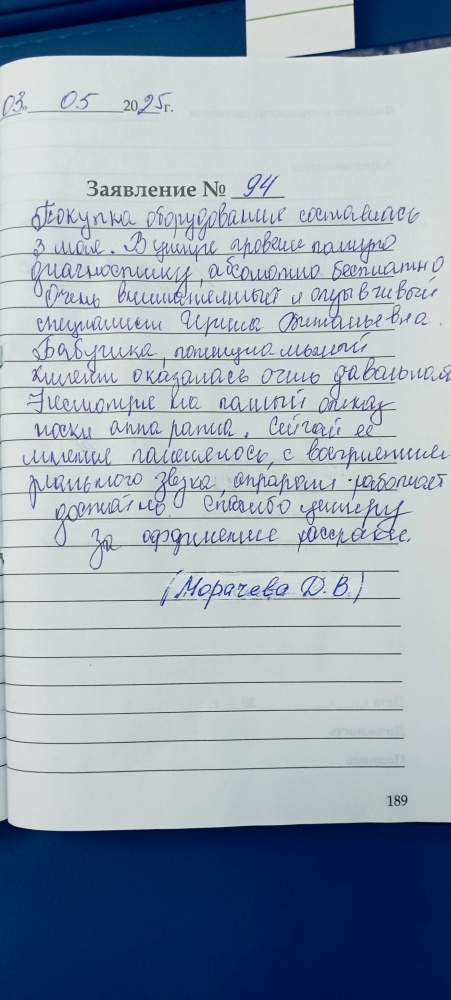 03. 05 2025г.
Заявление № 94
Покупка оборудование составлась
3 мая. В центре провели полную
диагностику, абсолютно бесплатно
Очень внимательный и отзывчивый
специалист Ирина Витальевна.
Бабушка, потенциальный
клиент оказалась очень давольная
Несмотря на полный отказ
носки аппарата. Сейчас её
мнение поменялось, с восприятием
реального звука, аппарат работает
достойно. Спасибо центру
за оформление рассрочке.
(Морачева Д.В.)
189